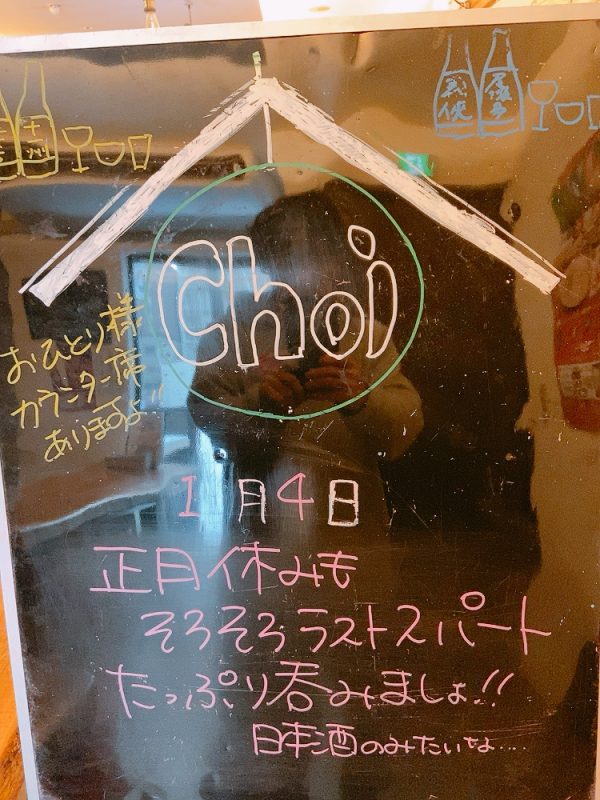 Choi
おひとり様
カウンター席
ありますよ!!
1月4日
正月休みも
そろそろラストスパート
たっぷり呑みましょ!!
日本酒のみたいな....